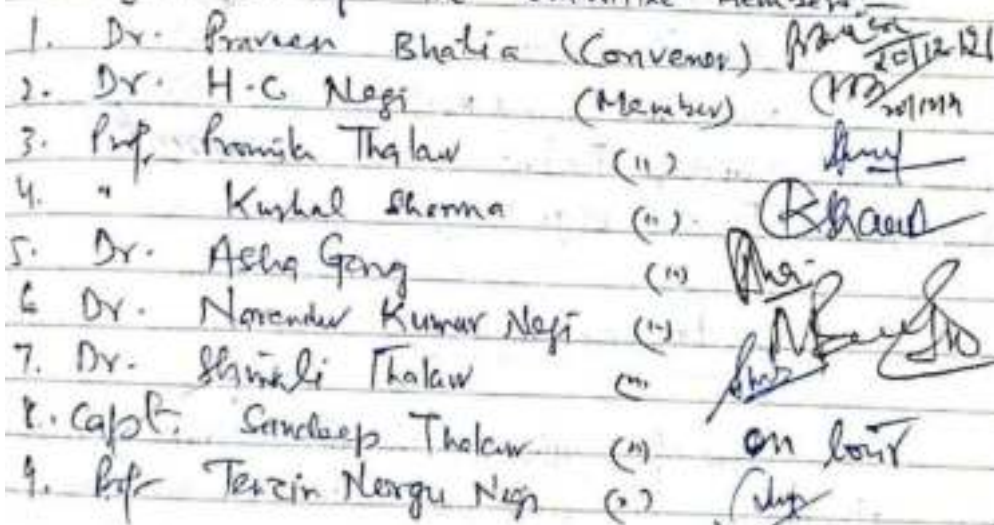 Members
1. Dr. Praveen Bhatia (Convenor) 20/12/21
2. Dr. H.C Negi (Member)
3. Prof. Promila Thalaur (")
4. " Kushal Sharma (")
5. Dr. Asha Gong (")
6 Dr. Narender Kumar Negi (")
7. Dr. Shivali Thalaur (")
8. Capt. Sandeep Thalaur (") on tour
9. Prof Tenzin Norgu Negi (")